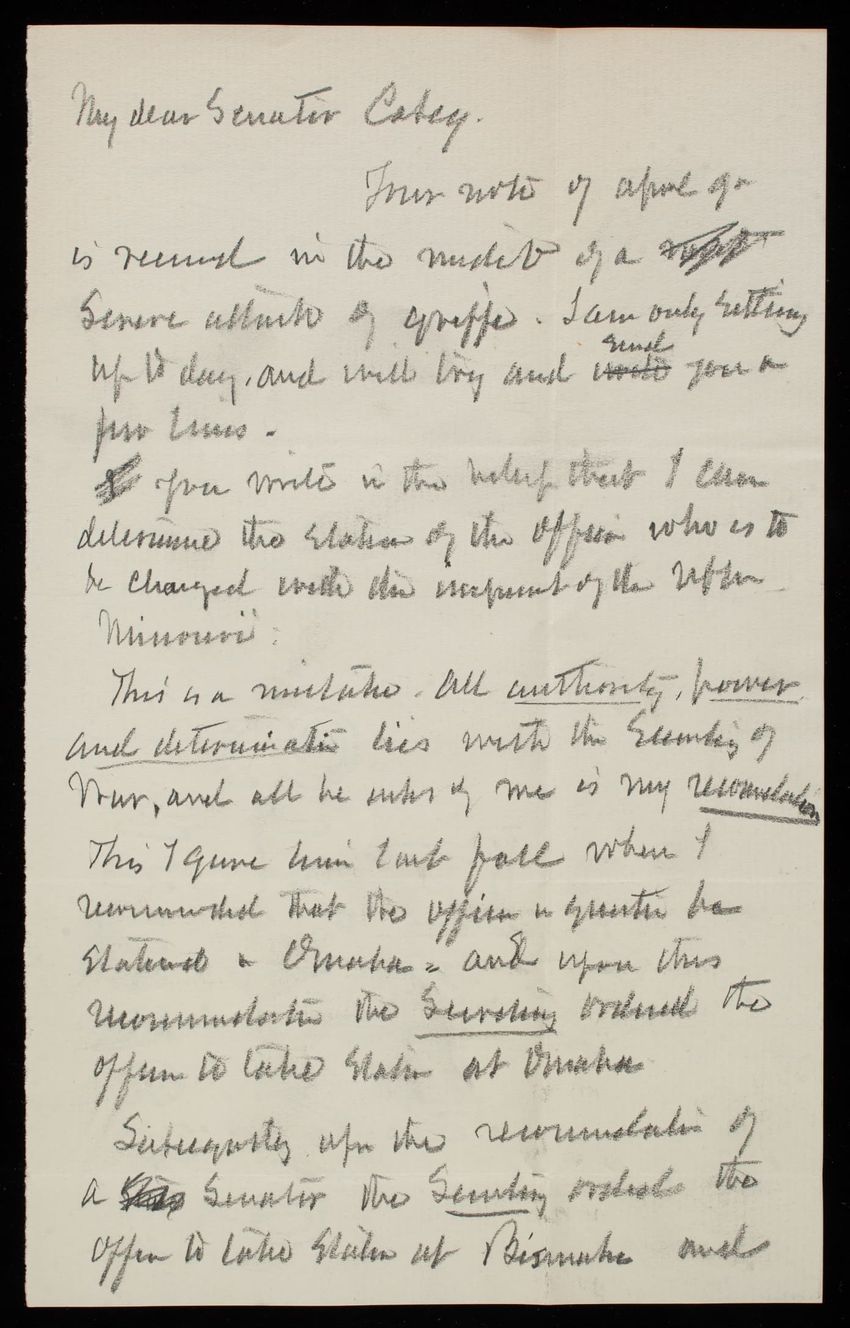 My dear Senator Casey.
Your note of april 9th
is received in the midst of a
severe attack of grippe. I am only getting
up to day, and will try and send write you a
few lines.
you write in the belief that I can
determine the station of the officer who is to
be charged with the improvement of the Upper
Missouri.
This is a mistake. All authority, power
and determination lies with the Secretary of
War, and all he asks of me is my recommendation
This I gave him last fall when I
recommended that the officer in question be
stationed at Omaha = and upon this
recommendation the Secretary ordered the
officer to take station at Omaha
Subsequently upon the recommendation of
a Senator the Secretary ordered the
officer to take station at Bismarck and